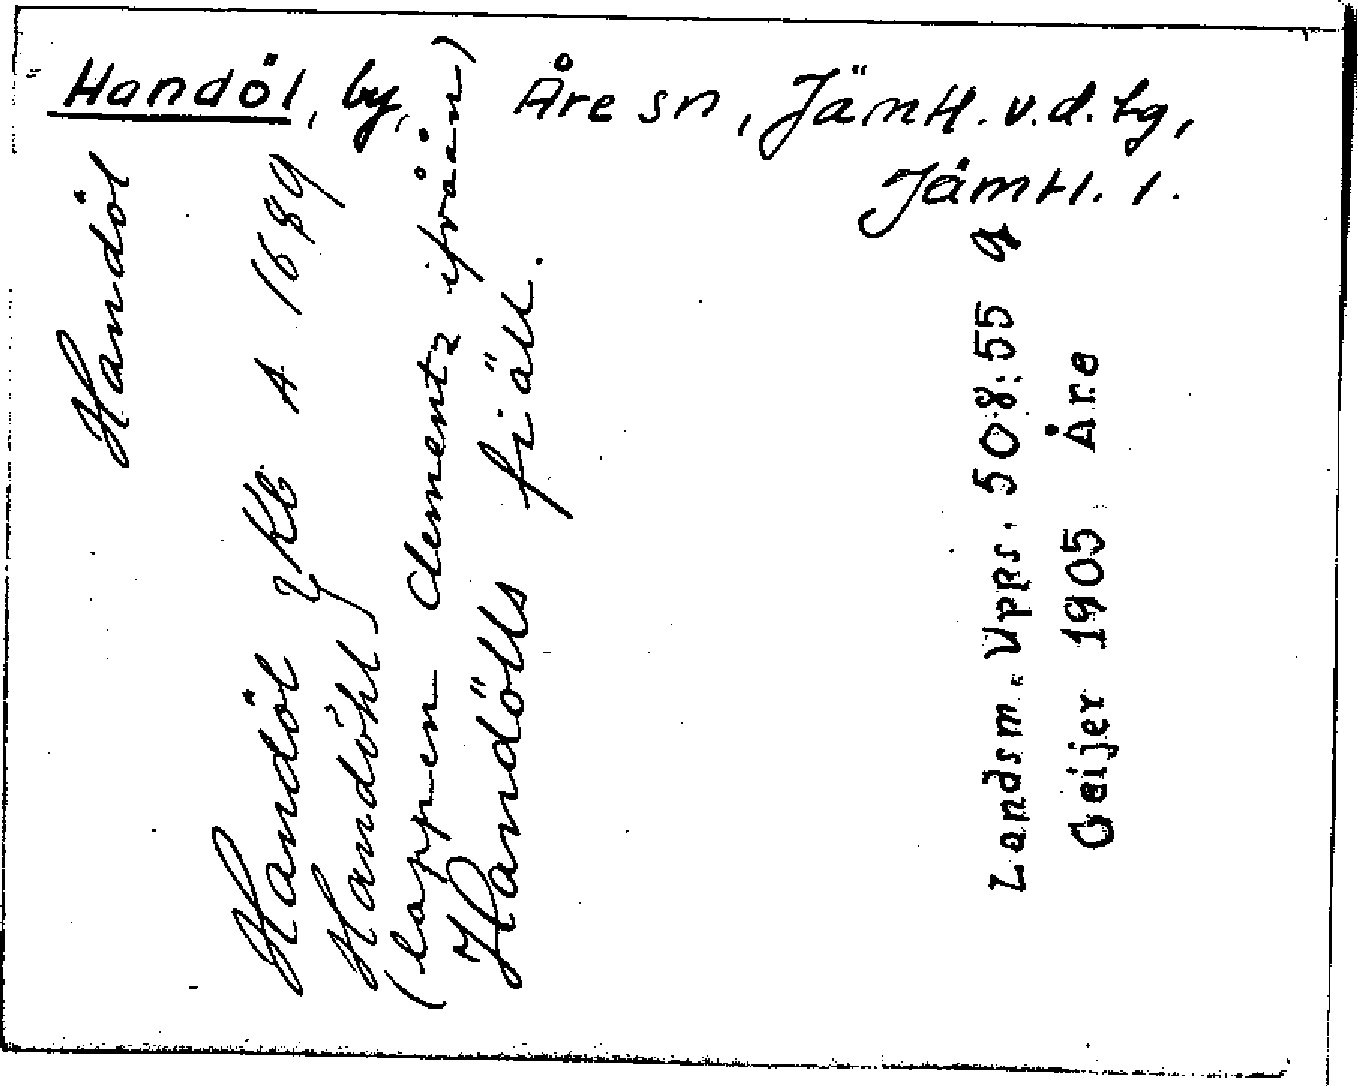 Handöl, by, Åre sn, Jämtl. v.d. tg,
Jämtl. l.
Handöl
Handöl } Kb A 1689
Handöhl
(lappen Clementz ifråån)
Handölls fiäll.
Landsm. Upps. 508:55 q
Geijer 1905 Åre